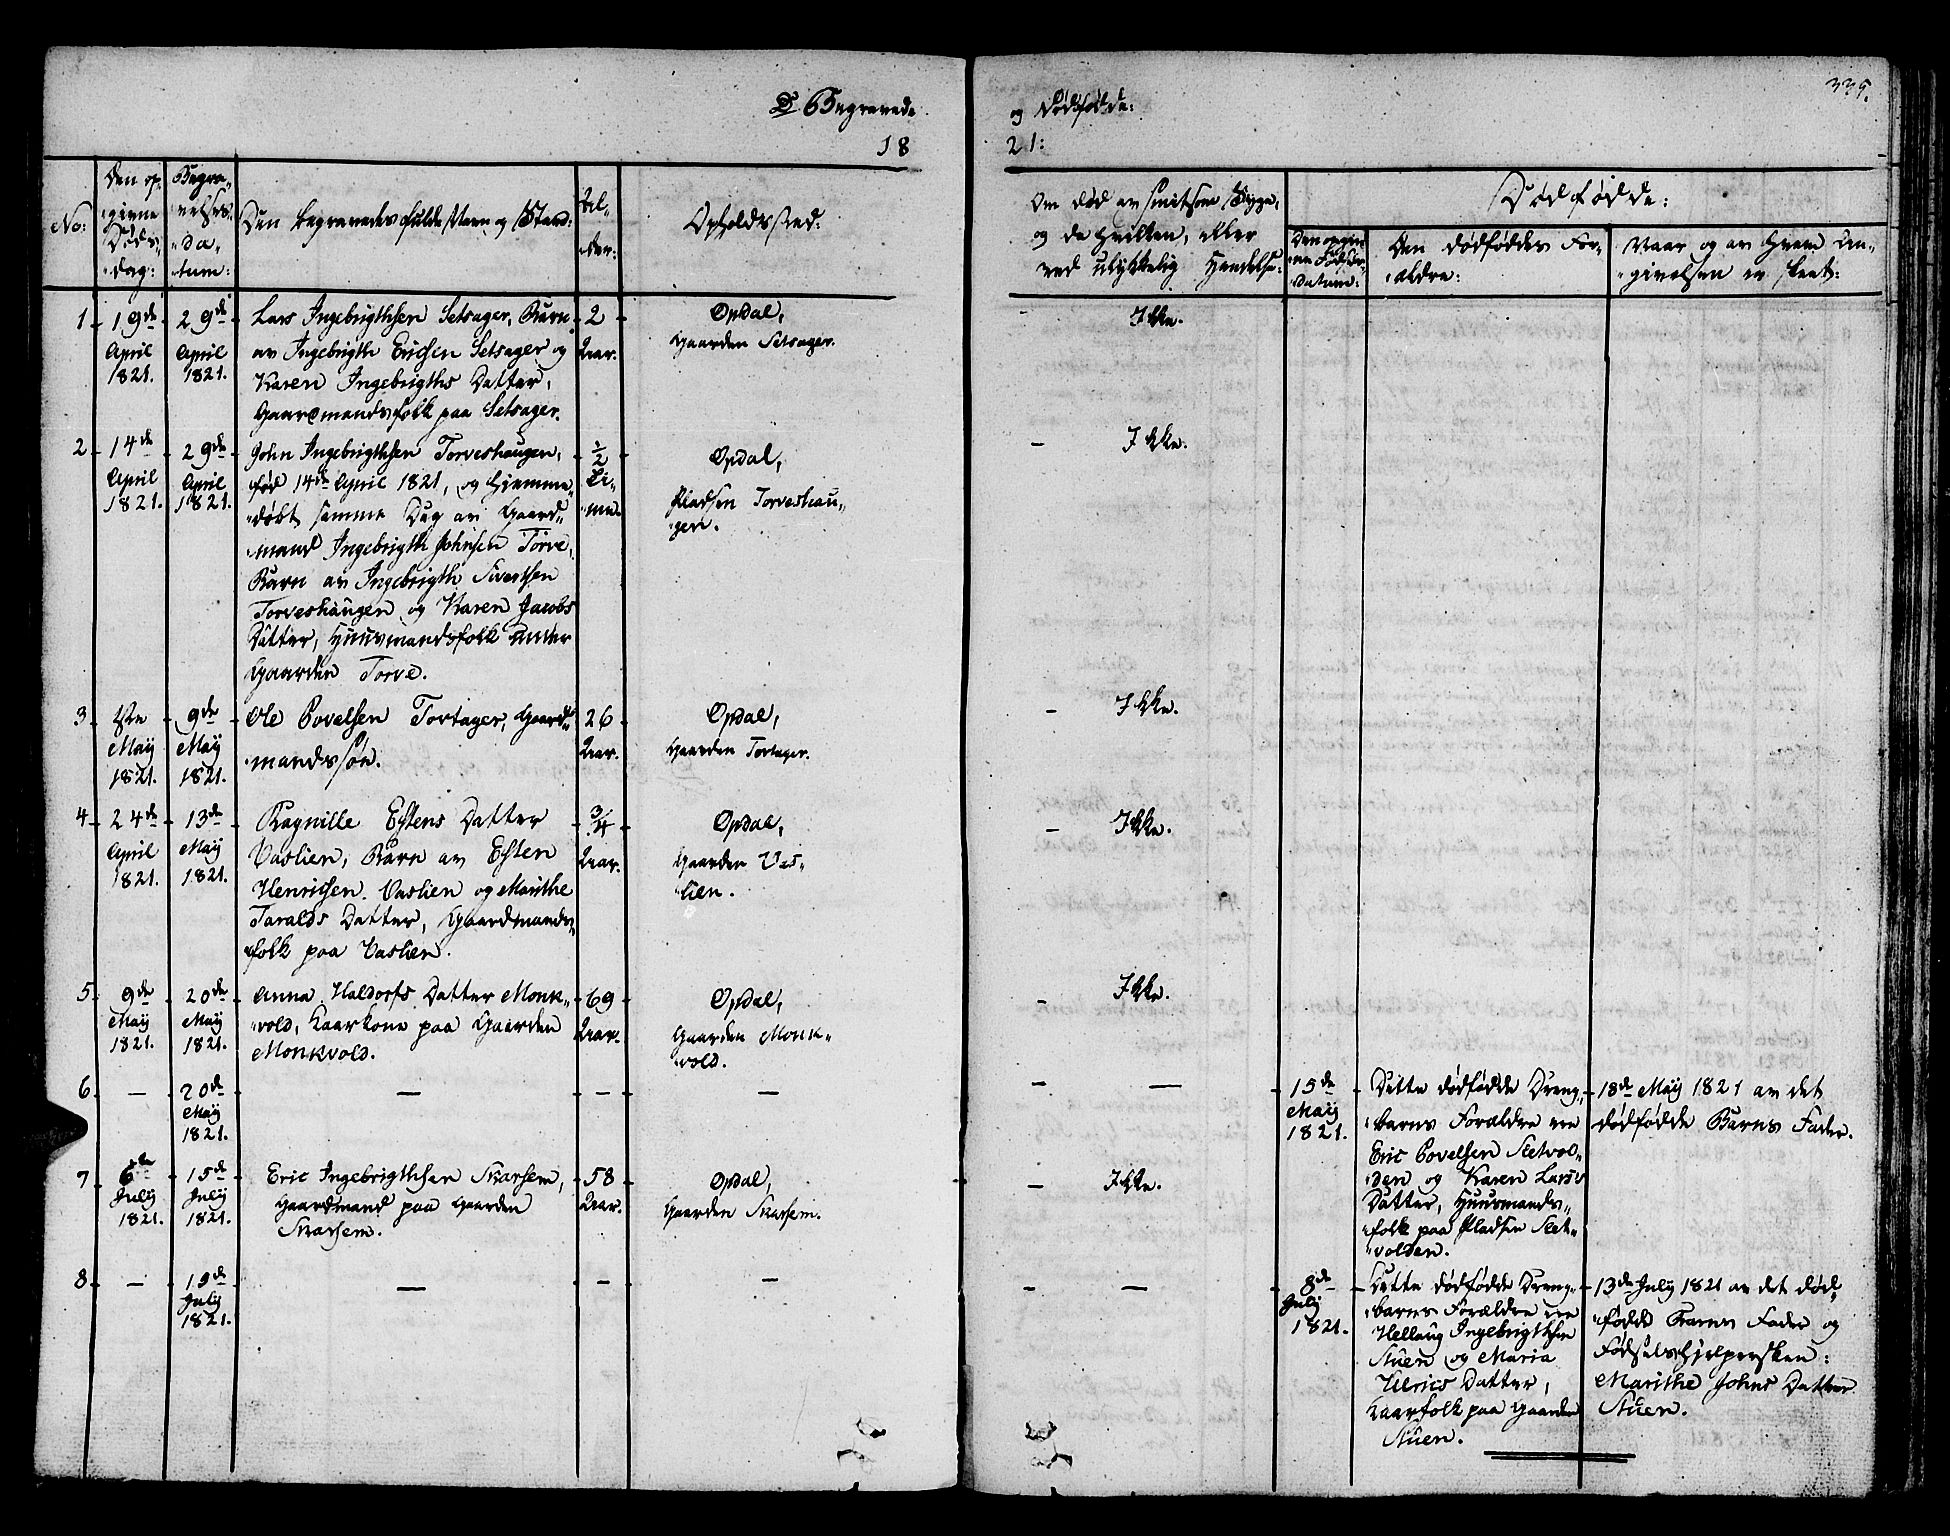 335.
Begravede
og Dødfødte:
18
21:
No:
Den op-
givne
Døds-
dag:
Begra-
velses-
da-
tum:
Den begravedes fulde Navn og Stand:
Al-
der:
Opholdssted:
Om død av smitsom Syge,
og da hvilken, eller
ved ulykkelig Hendelse:
Dødfødde:
Den opgiv-
ne Fødsels-
datum:
Den dødføddes For-
ældre:
Naar og av hvem An-
givelsen er skeet:
1
19de
April
1821.
29de
April
1821.
Lars Ingebrigthsen Setsager, Barn
av Ingebrigth Ericsen Setsager og
Karen Ingebrigths Datter,
Gaardmandsfolk paa Setsager.
2
Aar.
Opdal,
Gaarden Setsager.
Ikke.
2
14de
April
1821.
29de
April
1821.
John Ingebrigthsen Torveshaugen,
fød 14de April 1821, og hjemme-
døbt samme Dag av Gaard-
mand Ingebrigth Johnsen Torve,
Barn av Ingebrigth Sivertsen
Torveshaugen og Karen Jacobs
Datter, Huusmandsfolk under
Gaarden Torve.
1/2
Ti-
me.
Opdal,
Pladsen Torveshau-
gen.
Ikke.
3
May
1821.
9de
May
1821.
Ole Povelsen Tortager, Gaard-
mandssøn.
26
Aar.
Opdal,
Gaarden Tortager.
Ikke.
4
24de
April
1821.
13de
May
1821.
Ragnille Estens Datter
Vaslien, Barn av Esten
Henricsen Vaslien og Marithe
Taralds Datter, Gaardmands-
folk paa Vaslien.
3/4
Aar.
Opdal,
Gaarden Vas-
lien.
Ikke.
5
9de
May
1821.
20de
May
1821.
Anna Haldors Datter Monk-
vold, Kaarkone paa Gaarden
Monkvold.
69
Aar.
Opdal,
Gaarden Monk-
vold.
Ikke.
6
—
20de
May
1821.
—
—
—
—
15de
May
1821.
Dette dødfødde Dreng-
barns Forældre ere
Eric Povelsen Sletvol-
den og Karen Lars
Datter, Huusmands-
folk paa Pladsen Slet-
volden.
18de May 1821 av det
dødfødde Barns Fader.
7
6te
July
1821.
15de
July
1821.
Eric Ingebrigthsen Skarsem,
Gaardmand paa Gaarden
Skarsem.
58
Aar.
Opdal,
Gaarden Skarsem.
Ikke.
8
—
19de
July
1821.
—
—
—
—
8de
July
1821.
Dette dødfødde Dreng-
barns Forældre ere
Hellaug Ingebrigthsen
Stuen og Maria
Ulrics Datter,
Kaarfolk paa Gaarden
Stuen.
13de July 1821 av det død-
fødde Barns Fader og
Fødselshjelpersken:
Marithe Johns Datter
Stuen.